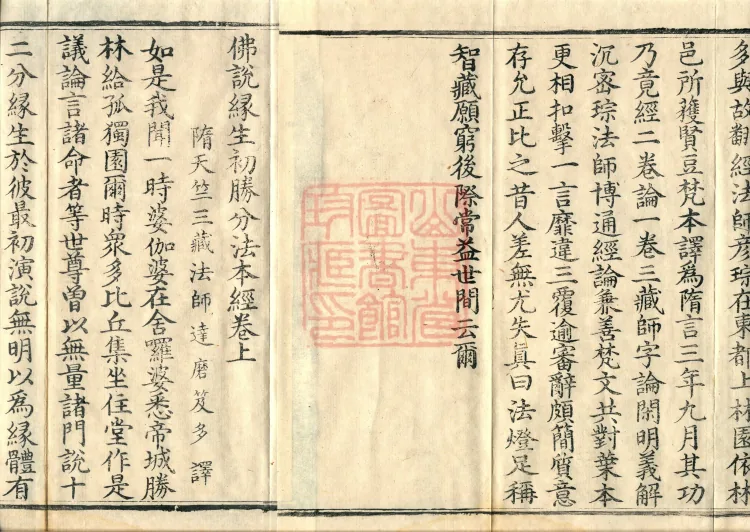 多與故翻經法師彥琮在東都上林園依林
邑所獲賢豆梵本譯為隋言三年九月其功
乃竟經二卷論一卷三藏師字論閑明義解
沉密琮法師博通經論兼善梵文共對葉本
更相扣擊一言靡違三覆逾審辭頗簡質意
存允正比之昔人差無尤失真曰法燈足稱
智藏願窮後際常益世間云爾
佛說緣生初勝分法本經卷上
隋天竺三藏法師達磨笈多譯
如是我聞一時婆伽婆在舍囉婆悉帝城勝
林給孤獨園爾時眾多比丘集坐住堂作是
議論言諸命者等世尊曾以無量諸門說十
二分緣生於彼最初演說無明以為緣體有
山東省
圖書館